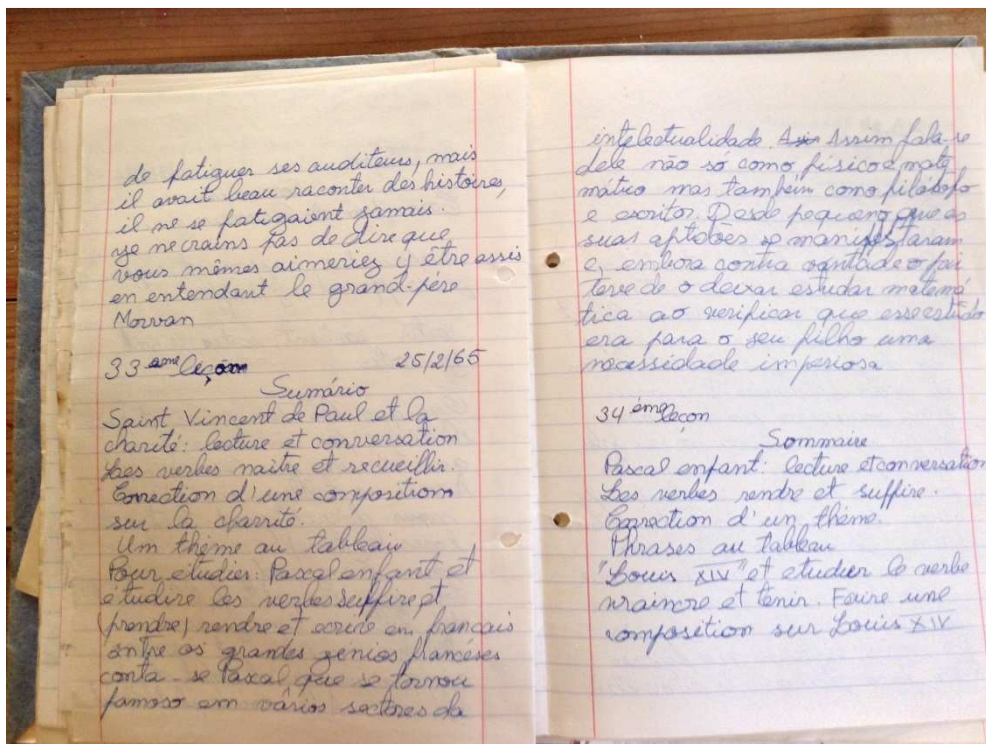 de fatiguer ses auditeurs, mais
il avait beau raconter des histoires,
il ne se fatigaient jamais.
ye ne crains pas de dire que
vous mêmes aimeriez y être assis
en entendant le grand-pére
Morvan
33 ame leçon 25/2/65
Sumário
Saint Vincent de Paul et la
charité: lecture et conversation
Les verbes naitre et recueillir.
Correction d'une composition
sur la charrité.
Um thème au tableau
Pour étudier: Pascal enfant et
étudire les verbes suffire et
(prendre) rendre et ecrire en français
entre os grandes genios franceses
conta-se Pascal que se tornou
famoso em vários sectores da
intelectualidade. Assim fala-se
dele não só como físico e mate
mático mas também como filósofo
e escritor. Desde pequeno que as
suas aptidões se manifestaram
e, embora contra vontade o pai
teve de o deixar estudar matemá
tica ao verificar que esse estudo
era para o seu filho uma
necessidade imperiosa
34 éme leçon
Sommaire
Pascal enfant: lecture et conversation
Les verbes rendre et suffire.
Correction d'un thème.
Phrases au tableau
"Louis XIV" et etudier le verbe
vraincre et tenir. Faire une
composition sur Louis XIV